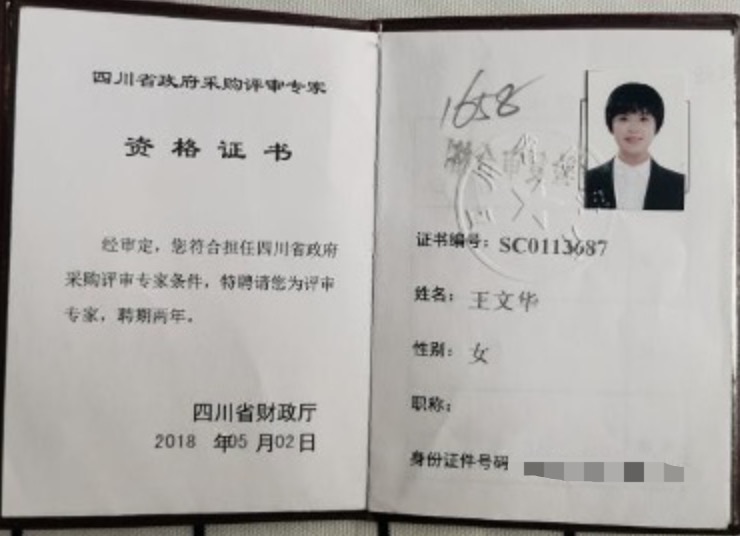 四川省政府采购评审专家
资格证书
经审定，您符合担任四川省政府
采购评审专家条件，特聘请您为评审
专家，聘期两年。
四川省财政厅
2018 年05 月02日
1658
证书编号：SC0113687
姓名：王文华
性别：女
职称：
身份证件号码